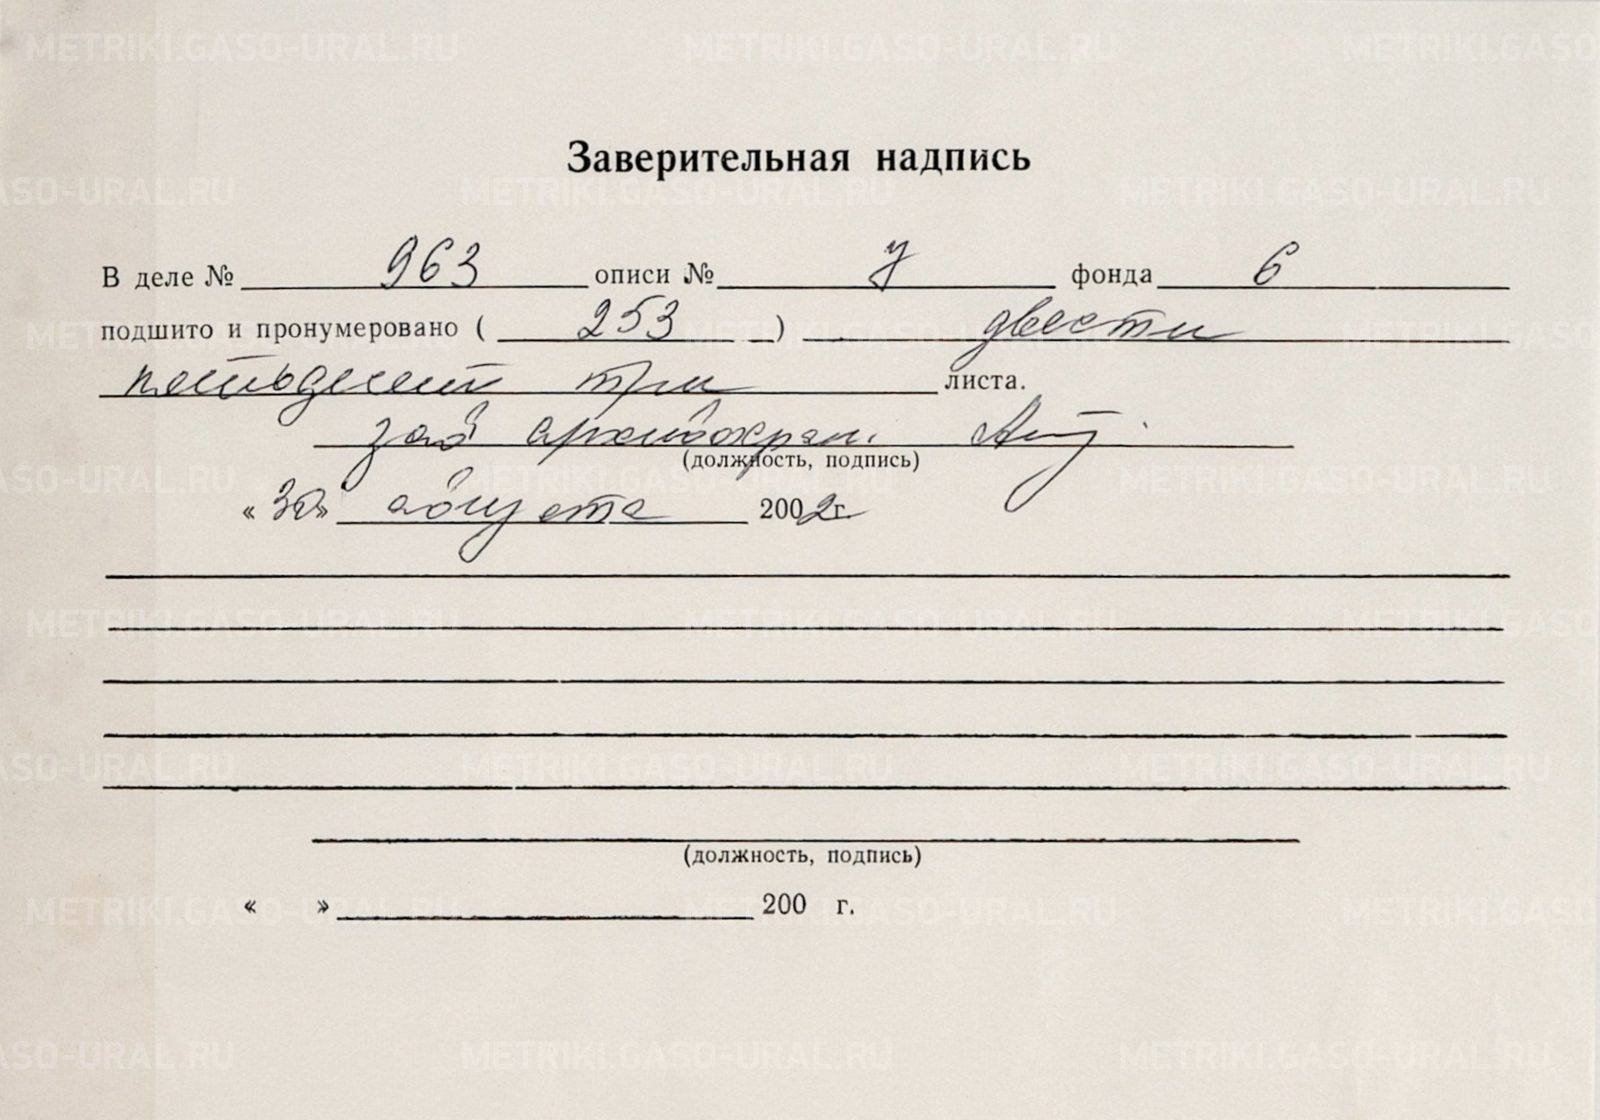 Заверительная надпись
В деле № 963 описи № 7 фонда 6
подшито и пронумеровано ( 253 ) двести
пятьдесят три листа.
зав архивохран.
(должность, подпись)
« 30 » августа 2002 г.
(должность, подпись)
« » 200 г.
METRIKI.GASO-URAL.RU